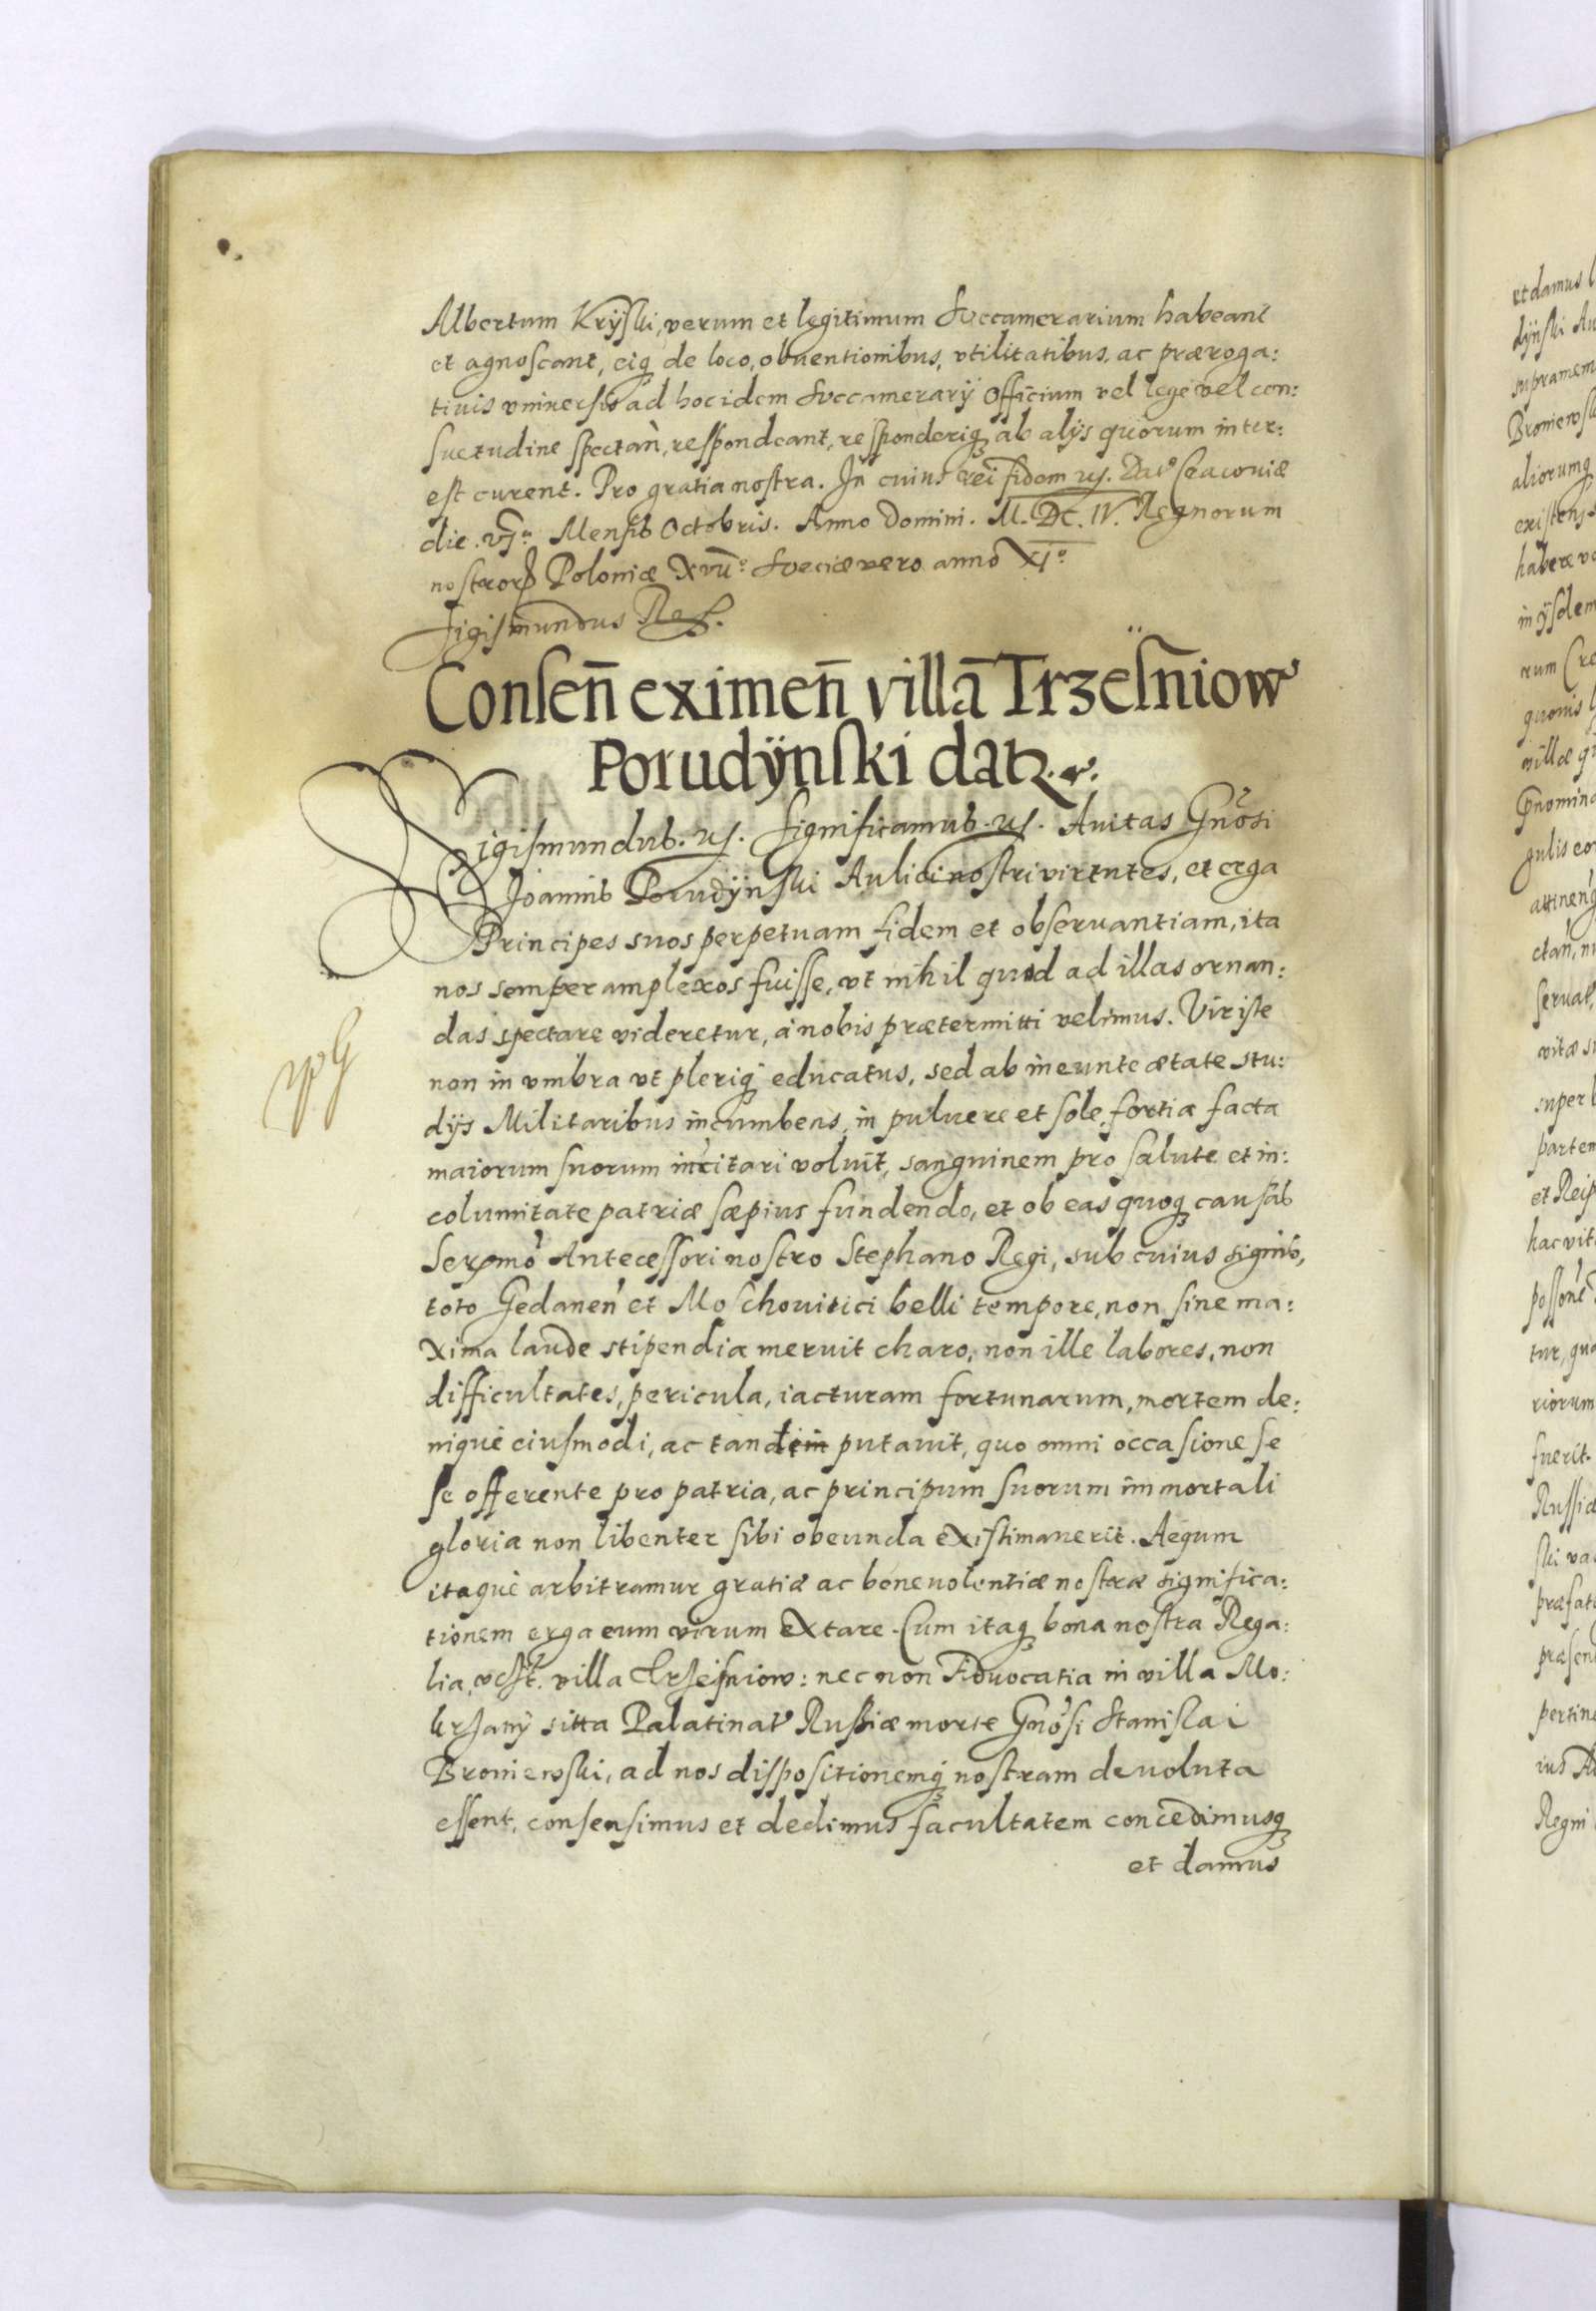 Albertum Kryski, verum et legitimum Succamerarium habeant
et agnoscant, eiq de loco, obuentionibus, vtilitatibus, ac præroga:
tiuis vniuersis ad hoc idem Succamerarÿ Officium vel lege vel con:
suetudine spectan, respondeant, responderiq ab alÿs quorum inter:
est curent. Pro gratia nostra. In cuius rei fidem Dat Cracouiæ
die . VI.a Mensis Octobris. Anno Domini. M. DC. IV. Regnorum
nostror Poloniæ XVII.o Sueciæ vero anno XI.o
Sigismundus Rex.
Consen̄ eximen̄ villā Trzesn̄iow
Porudÿnski dat
Sigismundus. Significamus. Auitas Gnosi
Joannis Porudÿnski Aulici nostri virtutes, et erga
Principes suos perpetuam fidem et obseruantiam, ita
nos semper amplexos fuisse, vt nihil quod ad illas ornan:
das spectare videretur, à nobis prætermitti velimus. Vir iste
non in vmbra vt pleriq educatus, sed ab ineunte ætate stu:
dÿs Militaribus incumbens, in puluere et sole, fortia facta
maiorum suorum incitari voluit, sanguinem pro salute et in:
columitate patriæ sæpius fundendo, et ob eas quoq causas
Sermo Antecessori nostro Stephano Regi, sub cuius signis,
toto Gedanen et Moschouitici belli tempore, non sine ma:
xima laude stipendia meruit charo, non ille labores, non
difficultates, pericula, iacturam fortunarum, mortem de:
niquè eiusmodi, ac tandem putauit, quo omni occasione se
se offerente pro patria, ac principum suorum immortali
gloria non libenter sibi obeunda existimauerit. Aequm
itaquè arbitramur gratiæ ac beneuolentiæ nostræ significa:
tionem erga eum virum extare. Cum itaq bona nostra Rega:
lia, villa Trzesniow: nec non Aduocatia in villa Mo:
krzany sitta Palatinat Russiæ morte Gnosi Stanislai
Broniewski, ad nos dispositionemq nostram deuoluta
essent, consensimus et dedimus facultatem concedimusq
et damus